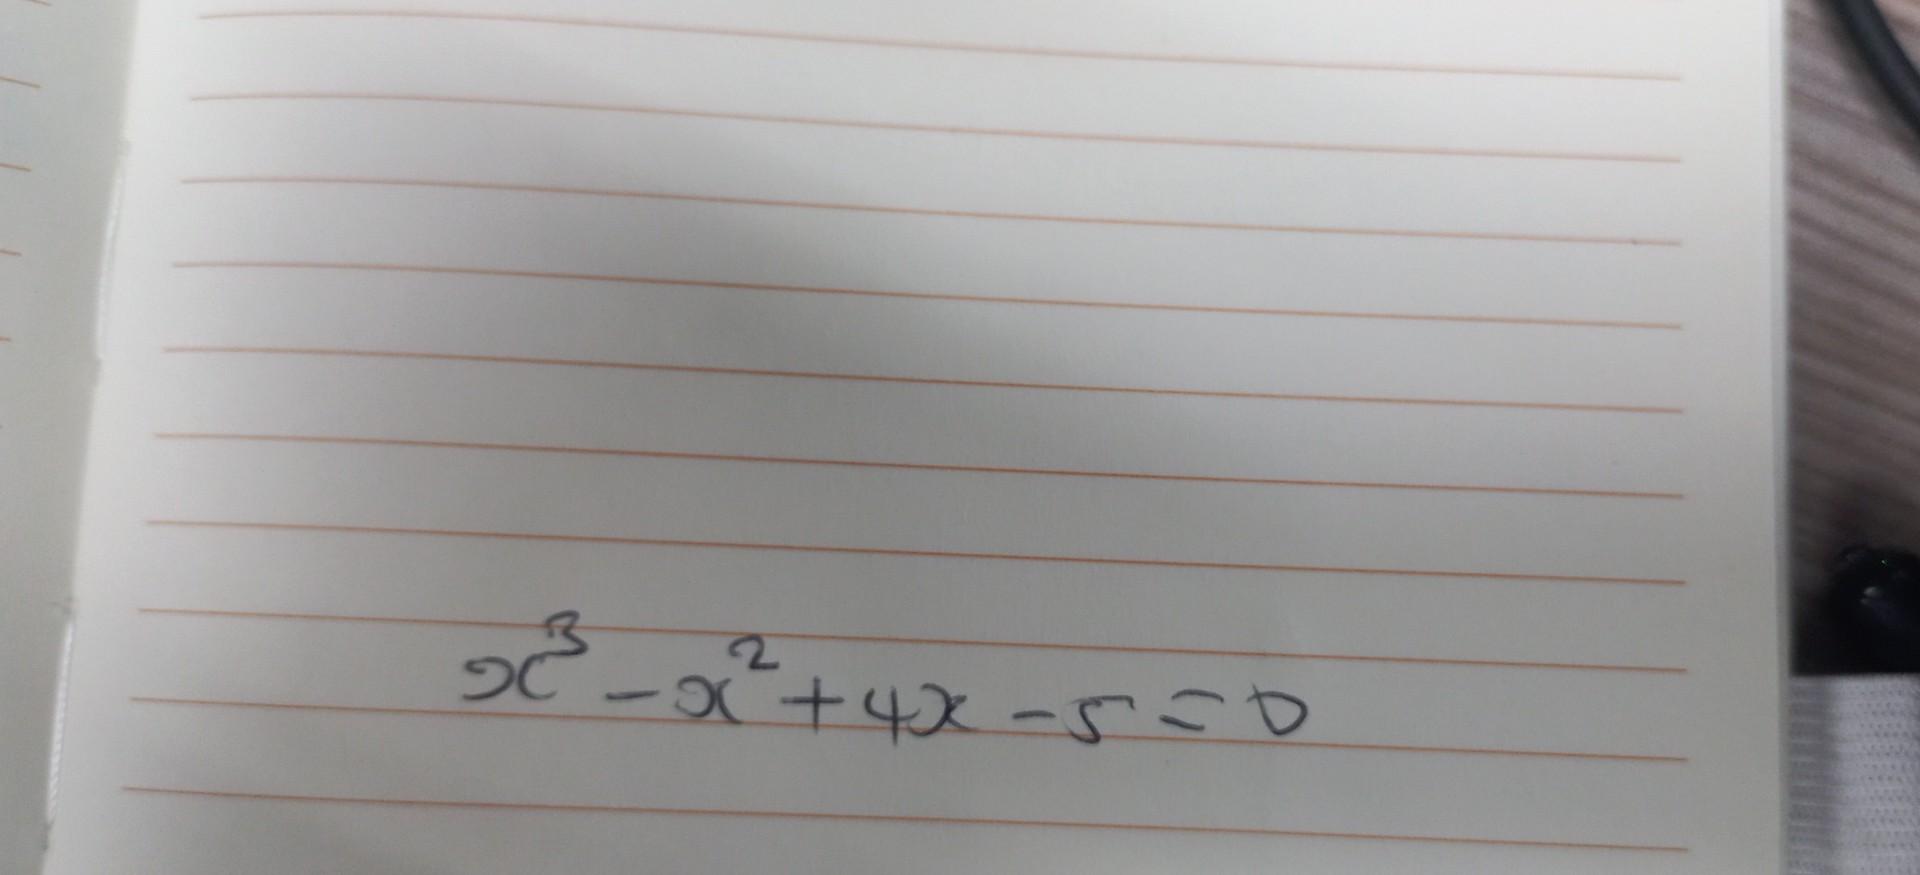 x³ - x² + 4x - 5 = 0